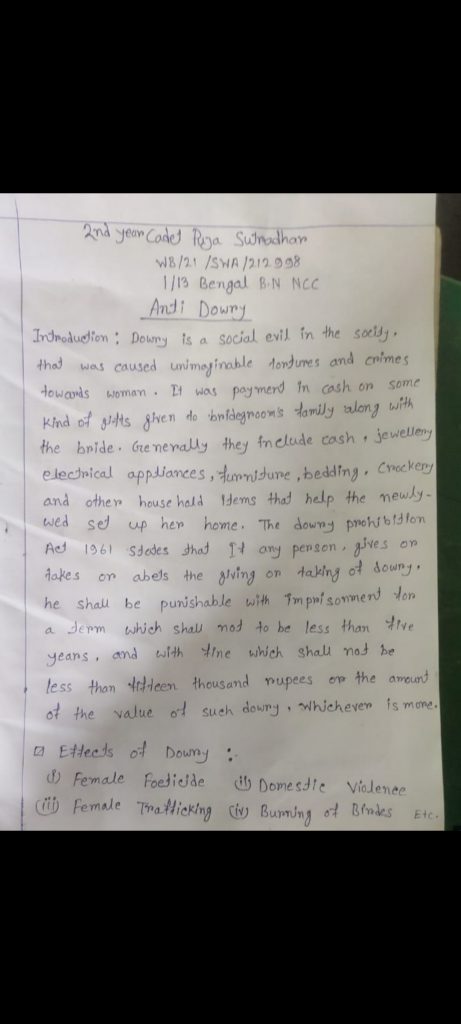 2nd year Cadet Puja Sutradhar
WB/21/SWA/212998
1/13 Bengal B.N NCC
Anti Dowry
Introduction : Dowry is a social evil in the socity,
that was caused unimaginable tortures and crimes
towards woman. It was payment in cash or some
kind of gifts given to bridegroom's family along with
the bride. Generally they include cash, jewellery
electrical appliances, furniture, bedding, Crockery
and other house hold Items that help the newly-
wed set up her home. The dowry prohibition
Act 1961 states that If any person, gives or
takes or abets the giving or taking of dowry,
he shall be punishable with imprisonment for
a term which shall not to be less than five
years, and with fine which shall not be
less than fifteen thousand rupees or the amount
of the value of such dowry, whichever is more.
Effects of Dowry :-
(i) Female Foeticide (ii) Domestic Violence
(iii) Female Trafficking (iv) Burning of Birdes Etc.